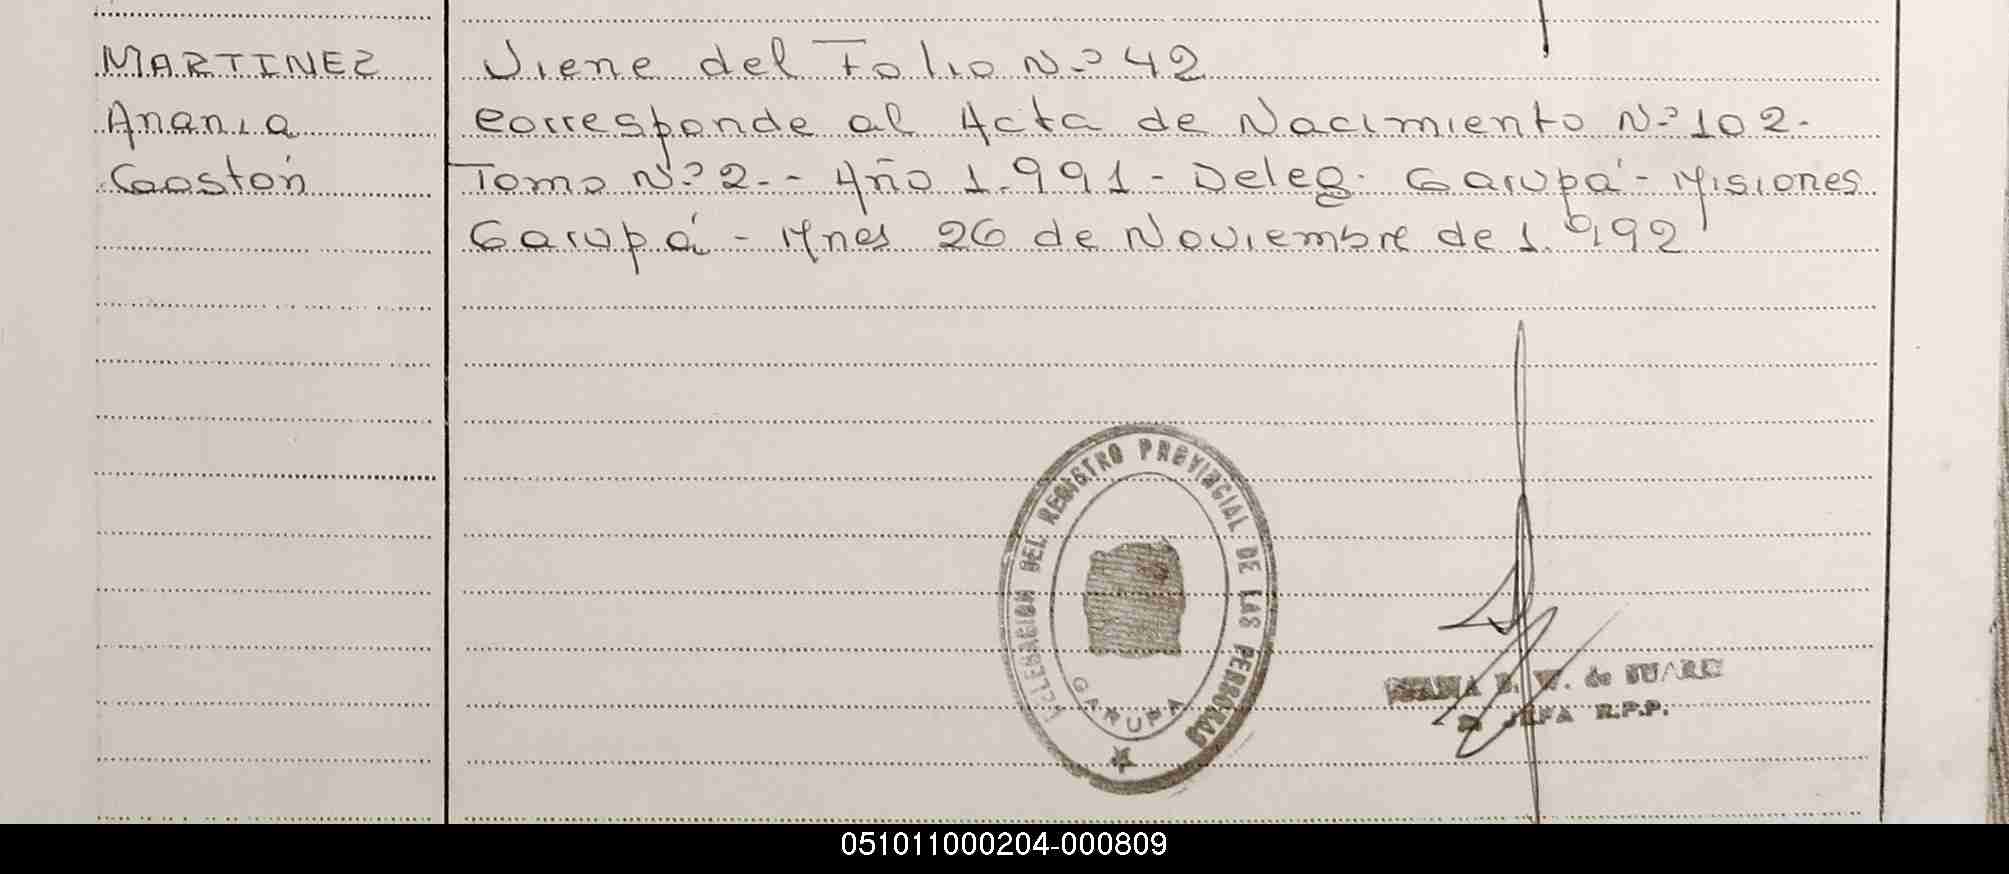 MARTINEZ
Anania
Gastón
Viene del Folio Nº 42
Corresponde al Acta de Nacimiento Nº 102.
Tomo Nº 2.- Año 1.991 - Deleg. Garupá - Misiones
Garupá - Mnes 26 de Noviembre de 1.992
DELEGACION DEL REGISTRO PROVINCIAL DE LAS PERSONAS
GARUPA
W. de SUAREZ
JEFA R.P.P.
051011000204-000809